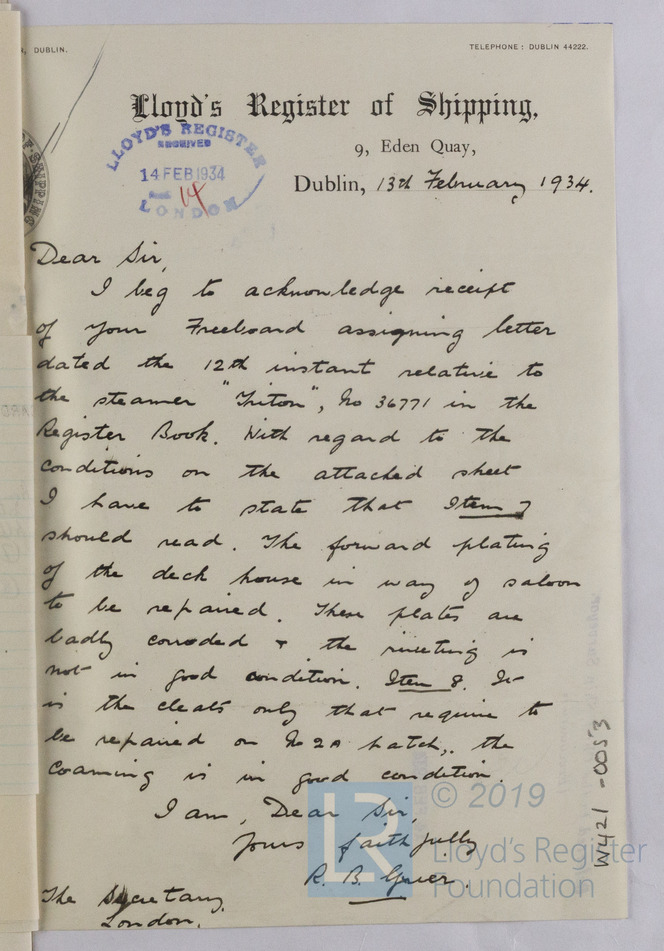 , DUBLIN.
TELEPHONE : DUBLIN 44222.
Lloyd's Register of Shipping,
9, Eden Quay,
LLOYD'S REGISTER
RECEIVED
14 FEB 1934
14
LONDON
Dublin, 13th February 1934.
Dear Sir,
I beg to acknowledge receipt
of your Freeboard assigning letter
dated the 12th instant relative to
the steamer "Triton", No 36771 in the
Register Book. With regard to the
conditions on the attached sheet
I have to state that Item 7
should read. The forward plating
of the deck house in way of saloon
to be repaired. These plates are
badly corroded & the riveting is
not in good condition. Item 8. It
is the cleats only that require to
be repaired on No 2A hatch,. the
coaming is in good condition.
I am, Dear Sir,
Yours faithfully
R. B.
The Secretary,
London.
W421-0053
© 2019
LR
Lloyd's Register
Foundation